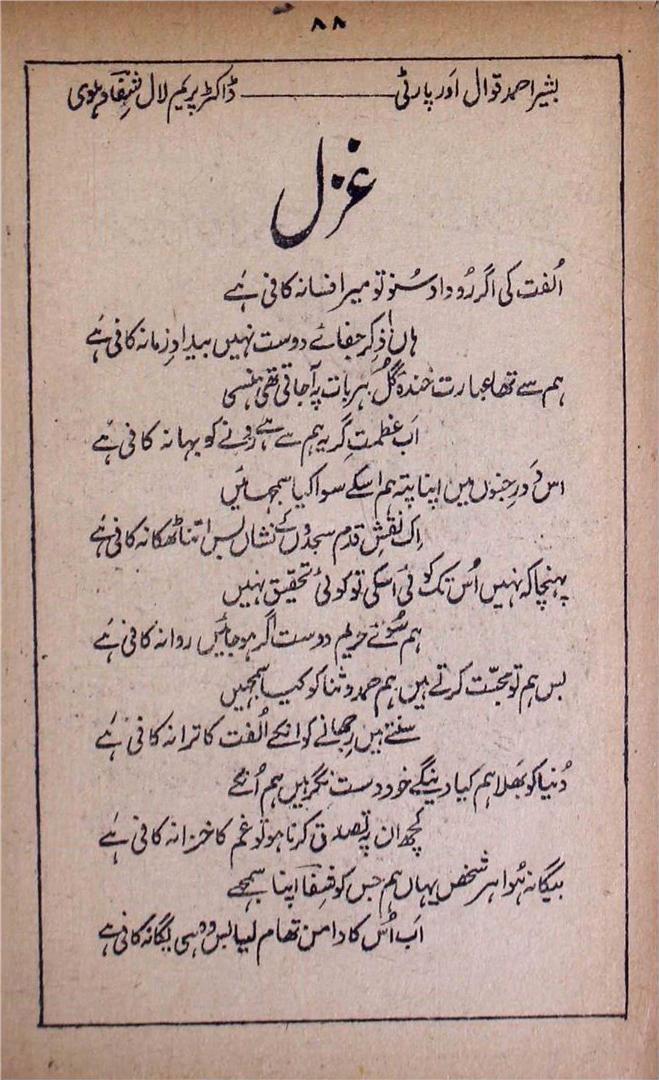 ۸۸
بشیر احمد قوال اَور پارٹی ——— ڈاکٹر پریم لال شِفَا دہلوی
غزل
اُلفت کی اگر رُوداد سُنو تو میرا فسانہ کافی ہے
ہاں ذِکرِ جفائے دوست نہیں بیدادِ زمانہ کافی ہے
ہم سے تھا عبارت خندۂ گُل ہر بات پہ آجاتی تھی ہنسی
اَب عظمتِ گریہ ہم سے ہے رونے کو بہانہ کافی ہے
اس دَورِ جنوں میں اپنا پتہ ہم اسکے سوا کیا سمجھائیں
اِک نقشِ قدم سجدوں کے نشاں بس اتنا ٹھکانہ کافی ہے
پہنچا کہ نہیں اُس تک کوئی اسکی تو کوئی تحقیق نہیں
ہم سُوئے حریمِ دوست اگر ہو جائیں روانہ کافی ہے
بس ہم تو محبّت کرتے ہیں ہم حمد و ثنا کو کیا سمجھیں
سنتے ہیں رِجھانے کو انکے اُلفت کا ترانہ کافی ہے
دُنیا کو بھلا ہم کیا دینگے خود دست نگر ہیں ہم اُنکے
کچھ ان پہ تصدق کرنا ہو تو غم کا خزانہ کافی ہے
بیگانہ ہُوا ہر شخص یہاں ہم جس کو شِفَا اپنا سمجھے
اَب اُس کا دامن تھام لیا بس وہ ہی یگانہ کافی ہے